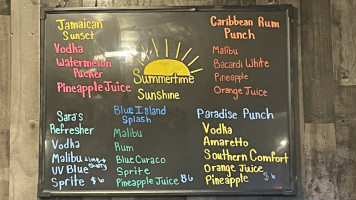 Jamaican
Sunset
Vodka
Watermelon
Pucker
Pineapple Juice
Summertime
Sunshine
Caribbean Rum
Punch
Malibu
Bacardi White
Pineapple
Orange Juice
Sara's
Refresher
Vodka
Malibu
UV Blue
Sprite $6
Blue Island
Splash
Malibu
Rum
Blue Curaco
Sprite
Pineapple Juice $6
Paradise Punch
Vodka
Amaretto
Southern Comfort
Orange Juice
Pineapple $6